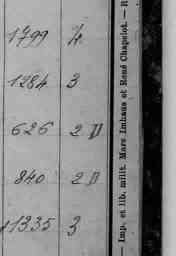 1799 4
1284 3
626 2 D
840 2 D
11335 3
— Imp. et lib. milit. Marc Imhaus et René Chapelot. — R